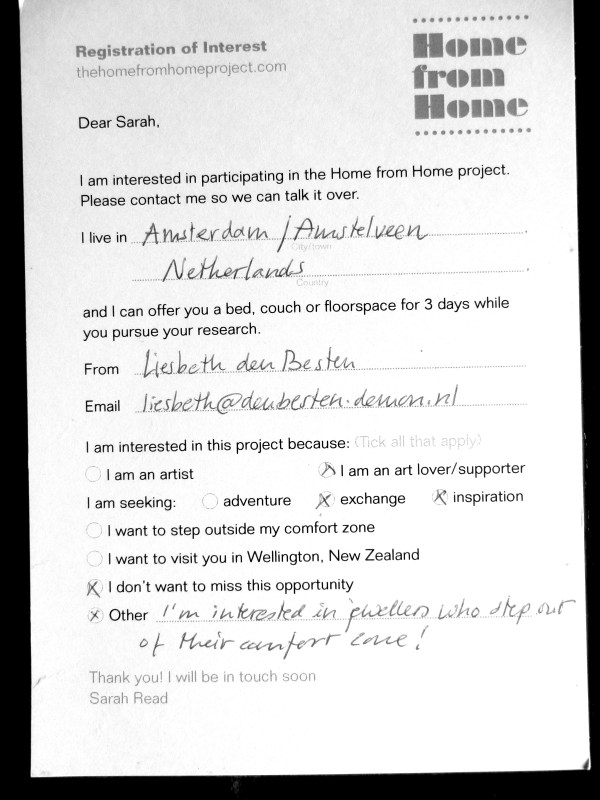 Registration of Interest
thehomefromhomeproject.com
Home
from
Home
Dear Sarah,
I am interested in participating in the Home from Home project.
Please contact me so we can talk it over.
I live in Amsterdam / Amstelveen
City/Town
Netherlands
Country
and I can offer you a bed, couch or floorspace for 3 days while
you pursue your research.
From Liesbeth den Besten
Email liesbeth@denbesten.demon.nl
I am interested in this project because: (Tick all that apply)
I am an artist I am an art lover/supporter
I am seeking: adventure exchange inspiration
I want to step outside my comfort zone
I want to visit you in Wellington, New Zealand
I don't want to miss this opportunity
Other I'm interested in jewellers who step out
of their comfort zone!
Thank you! I will be in touch soon
Sarah Read